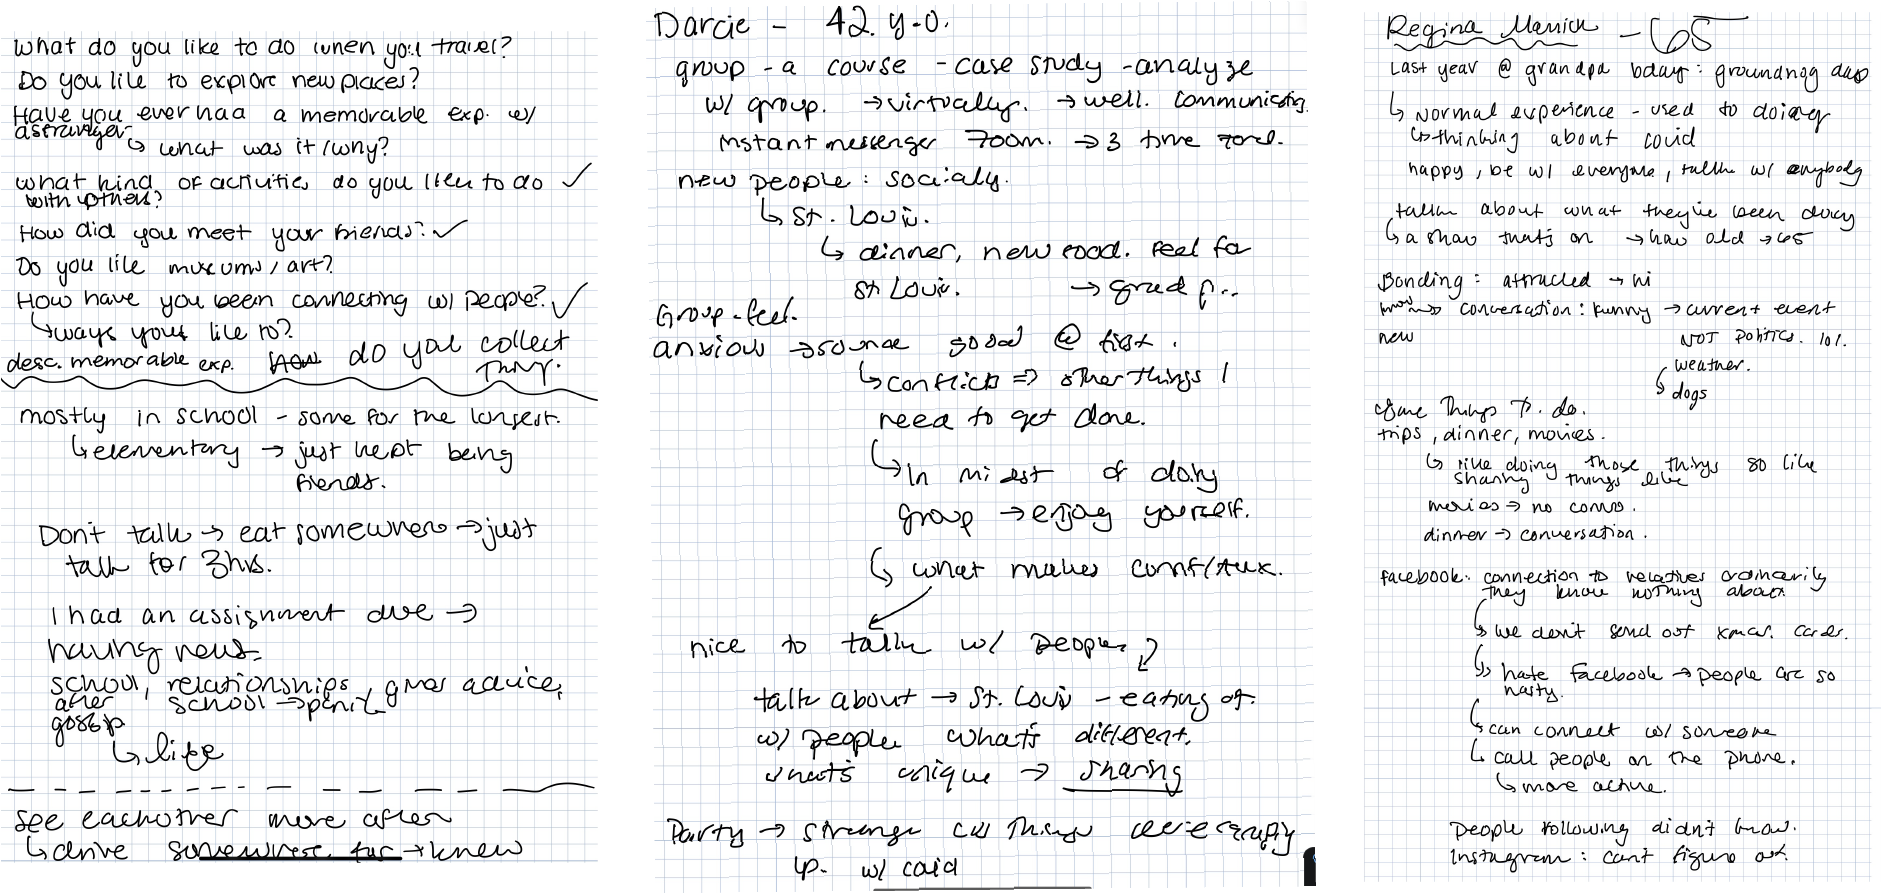 What do you like to do when you travel?
Do you like to explore new places?
Have you ever had a memorable exp. w/
a stranger
↳ what was it/why?
what kind of activities do you like to do ✓
with others?
How did you meet your friends? ✓
Do you like museums/art?
How have you been connecting w/ people? ✓
↳ ways you like to?
desc. memorable exp. do you collect
things.
mostly in school - some for the longest.
↳ elementary → just kept being
friends.
Don't talk → eat somewhere → just
talk for 3hrs.
I had an assignment due →
having news.
school, relationships, gives advice,
after school →
gossip
↳ life
see eachother more after
↳ drive somewhere far → knew
Darcie - 42. y.o.
group - a course - case study - analyze
w/ group. → virtually. → well. communicating.
instant messenger zoom. → 3 time zone.
new people: socialy.
↳ St. Louis.
↳ dinner, new food. feel for
St Louis. →
Group-feel.
anxious → sounds good @ first.
↳ conflicts ⇒ other things I
need to get done.
↳ In midst of doing
group → enjoy yourself.
↳ what makes
nice to talk w/ people.
talk about → St. Louis - eating of.
w/ people what's different.
what's unique → sharing
Party → strange
w/
Regina - 65
Last year @ grandpa bday: groundhog day
↳ normal experience - used to doing
↳ thinking about covid
happy, be w/ everyone, talk w/ anybody
talk about what they've been doing
↳ a show that's on → how old → 65
Bonding: attracted → hi
conversation: funny → current event
new
NOT politics. lol.
weather.
↳ dogs
Things to do.
trips, dinner, movies.
↳ like doing those things so like
sharing things like
movies → no convo.
dinner → conversation.
facebook: connection to relatives ordinarily
they know nothing about
↳ we don't send out xmas. cards.
↳ hate facebook → people are so
nasty.
↳ can connect w/ someone
↳ call people on the phone.
↳ more active.
people following didn't know.
Instagram: can't figure out.